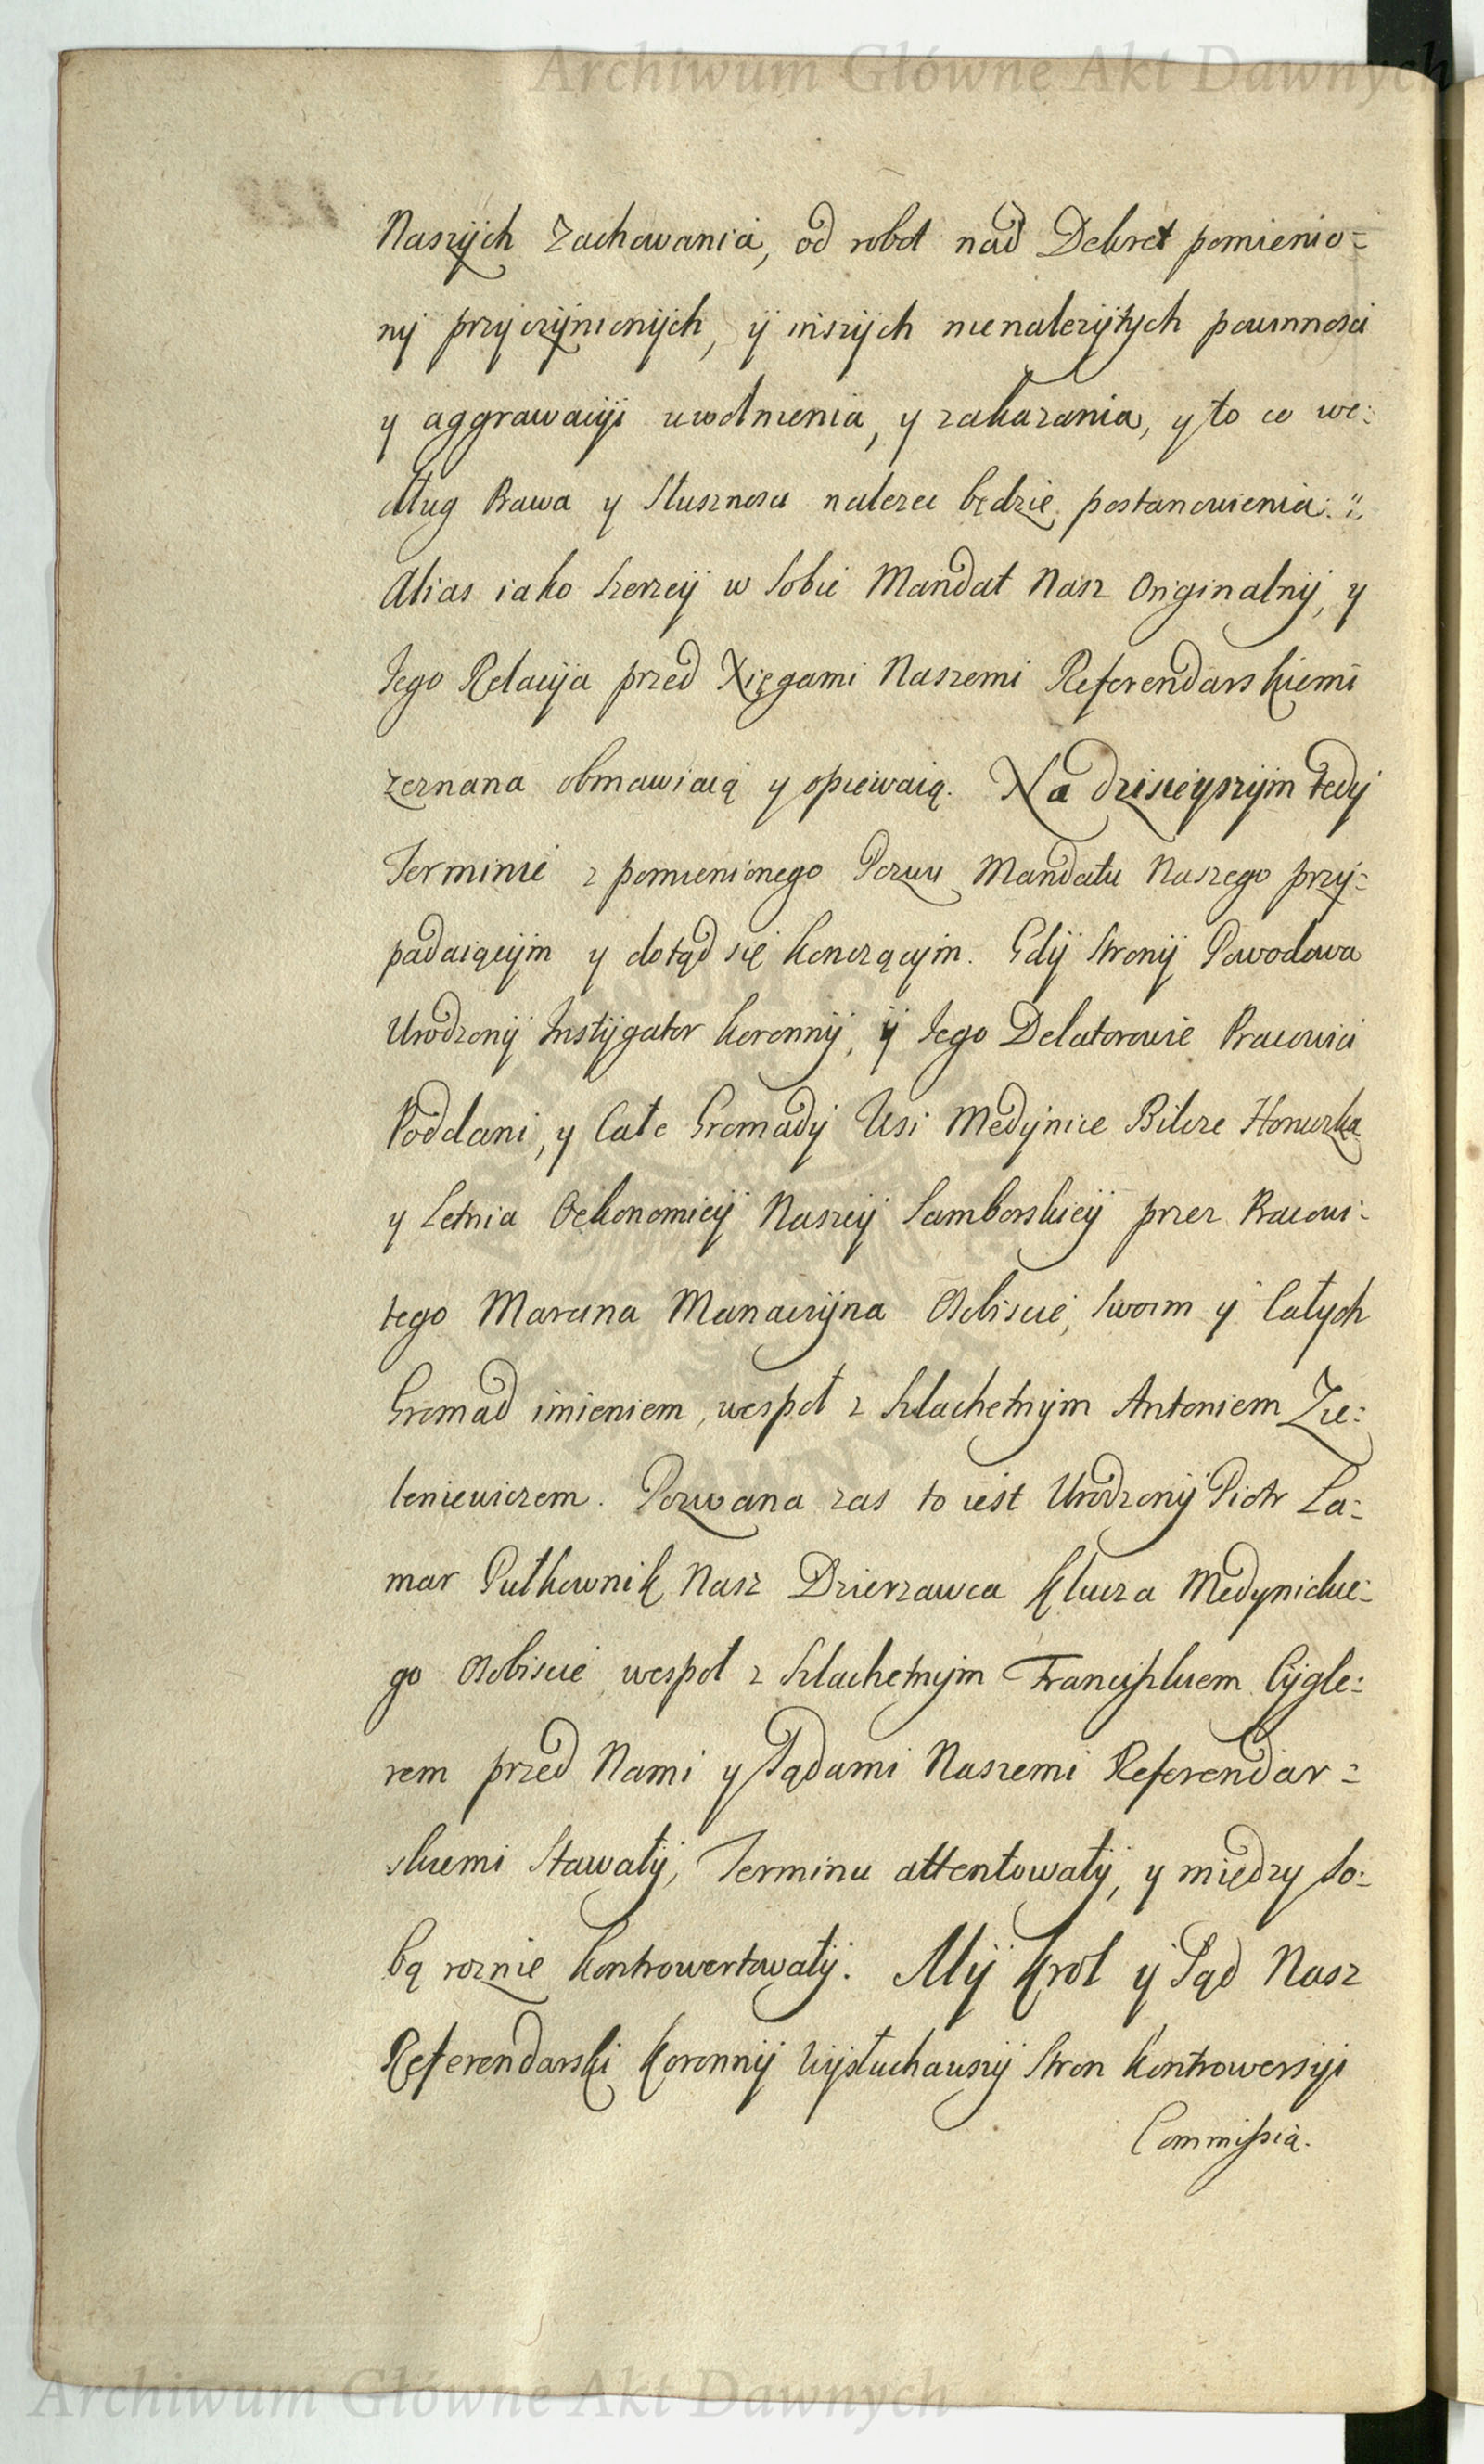 Archiwum Główne Akt Dawnych
Naszych Zachowania, od robot nad Dekret pomienio=
ny przyczynionych, y inszych nienalezytych powinnosci
y aggrawacyi uwolnienia, y zakazania, y to co we=
dług Prawa y Słusznosci nalezec będzie postanowienia.
Alias iako szerzey w Sobie Mandat Nasz Originalny, y
Iego Relacya przed Xięgami Naszemi Referendarskiemi
zeznana obmawiaią y opiewaią. Na dzisieyszym tedy
Terminie z pomienionego Pozwu Mandatu Naszego przy=
padaiącym y dotąd się konczącym. Gdy Strony Powodowa
Urodzony Instygator koronny, y Iego Delatorowie Pracowici
Poddani, y Całe Gromady Wsi Medynice Bilcze Honuzka
y Letnia Oekonomiey Naszey Samborskiey przez Pracowi=
tego Marcina Manaczyna Osobiscie, Swoim y Całych
Gromad imieniem, wespoł z Szlachetnym Antoniem Zie=
leniewiczem. Pozwana zas to iest Urodzony Piotr La=
mar Pułkownik Nasz Dzierzawca Klucza Medynickie=
go Osobiscie wespoł z Szlachetnym Franciszkiem Cygle=
rem przed Nami y Sądami Naszemi Referendar=
skiemi Stawały, Terminu attentowały, y między So=
bą roznie kontrowertowały. My Krol y Sąd Nasz
Referendarski Koronny Wysłuchawszy Stron Kontrowersyi
Commissia.
Archiwum Główne Akt Dawnych